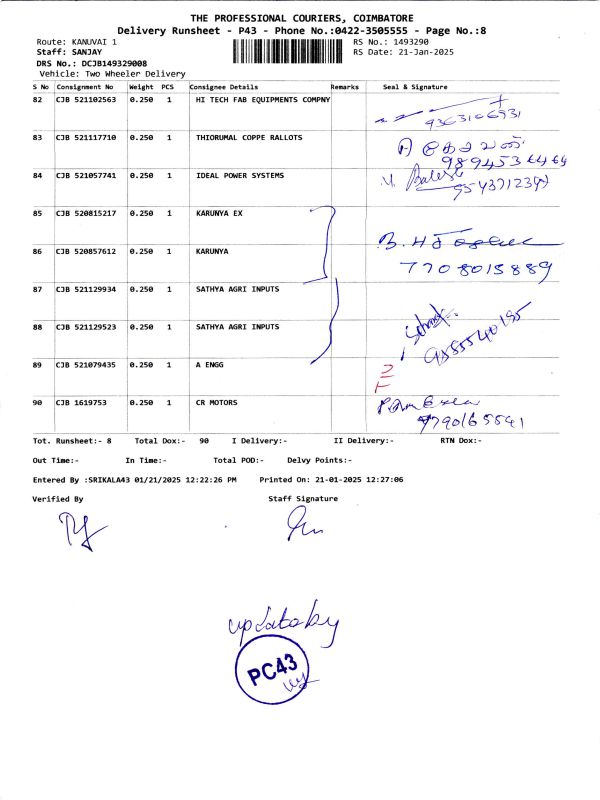 THE PROFESSIONAL COURIERS, COIMBATORE
Delivery Runsheet - P43 - Phone No.:0422-3505555 - Page No.:8
Route: KANUVAI 1 RS No.: 1493290
Staff: SANJAY RS Date: 21-Jan-2025
DRS No.: DCJB149329008
Vehicle: Two Wheeler Delivery
S No Consignment No Weight PCS Consignee Details Remarks Seal & Signature
82 CJB 521102563 0.250 1 HI TECH FAB EQUIPMENTS COMPNY
9363106931
83 CJB 521117710 0.250 1 THIORUMAL COPPE RALLOTS
9894536464
84 CJB 521057741 0.250 1 IDEAL POWER SYSTEMS
85 CJB 520815217 0.250 1 KARUNYA EX
86 CJB 520857612 0.250 1 KARUNYA
7708015889
87 CJB 521129934 0.250 1 SATHYA AGRI INPUTS
88 CJB 521129523 0.250 1 SATHYA AGRI INPUTS
89 CJB 521079435 0.250 1 A ENGG
90 CJB 1619753 0.250 1 CR MOTORS
Tot. Runsheet:- 8 Total Dox:- 90 I Delivery:- II Delivery:- RTN Dox:-
Out Time:- In Time:- Total POD:- Delvy Points:-
Entered By :SRIKALA43 01/21/2025 12:22:26 PM Printed On: 21-01-2025 12:27:06
Verified By Staff Signature
PC43